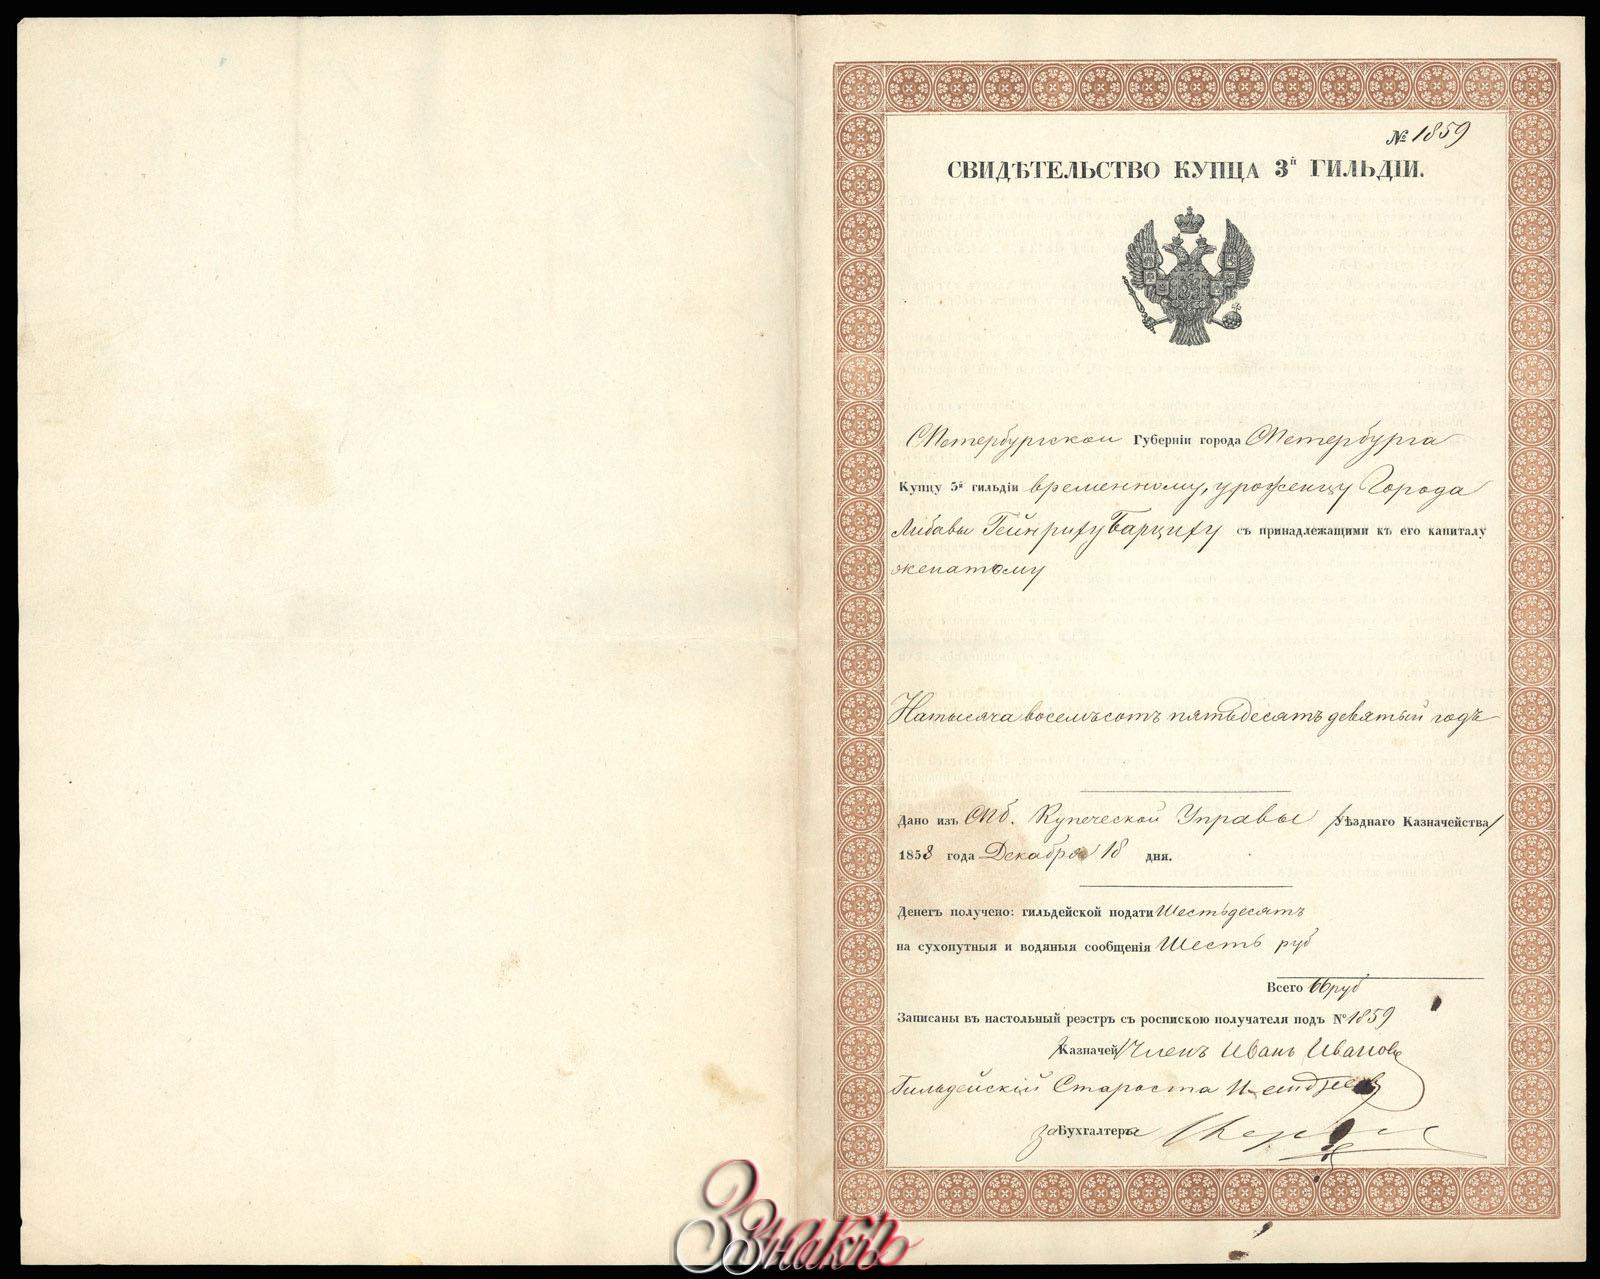 № 1859
СВИДѢТЕЛЬСТВО КУПЦА 3й ГИЛЬДІИ.
СПетербургской Губерніи города СПетербурга
Купцу 3й гильдіи временному, уроженцу Города
Либавы Гейнриху Барциху съ принадлежащими къ его капиталу
женатому
На тысяча восемьсотъ пятьдесятъ девятый годъ
Дано изъ СПб. Купеческой Управы /Уѣзднаго Казначейства/
1858 года Декабря 18 дня.
Денегъ получено: гильдейской подати Шестьдесятъ
на сухопутныя и водяныя сообщенія Шесть руб
Всего 66 руб
Записаны въ настольный реэстръ съ роспискою получателя подъ № 1859
/Казначей/ Членъ Иванъ Ивановъ
Гильдейскій Староста
за Бухгалтера
Ззнакъ